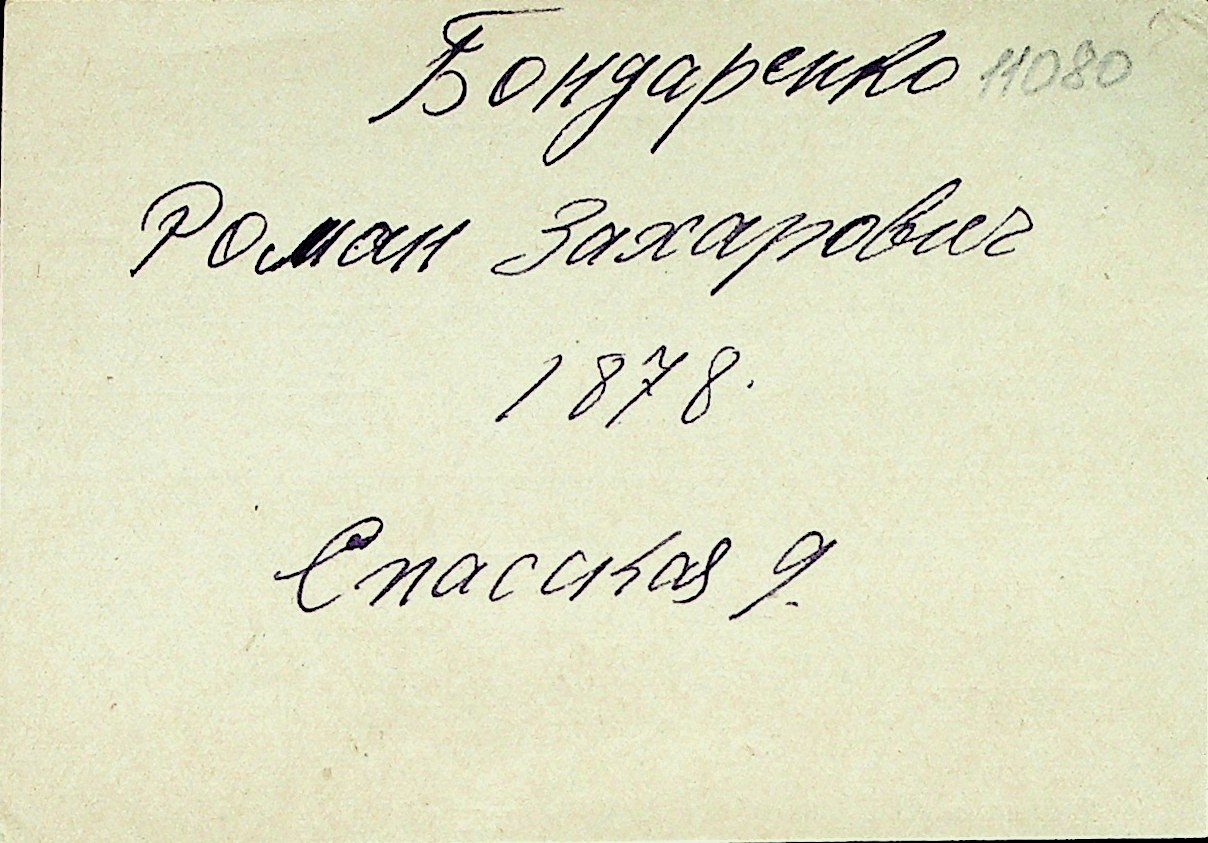 Бондаренко 11080
Роман Захарович
1878.
Спасская 9.